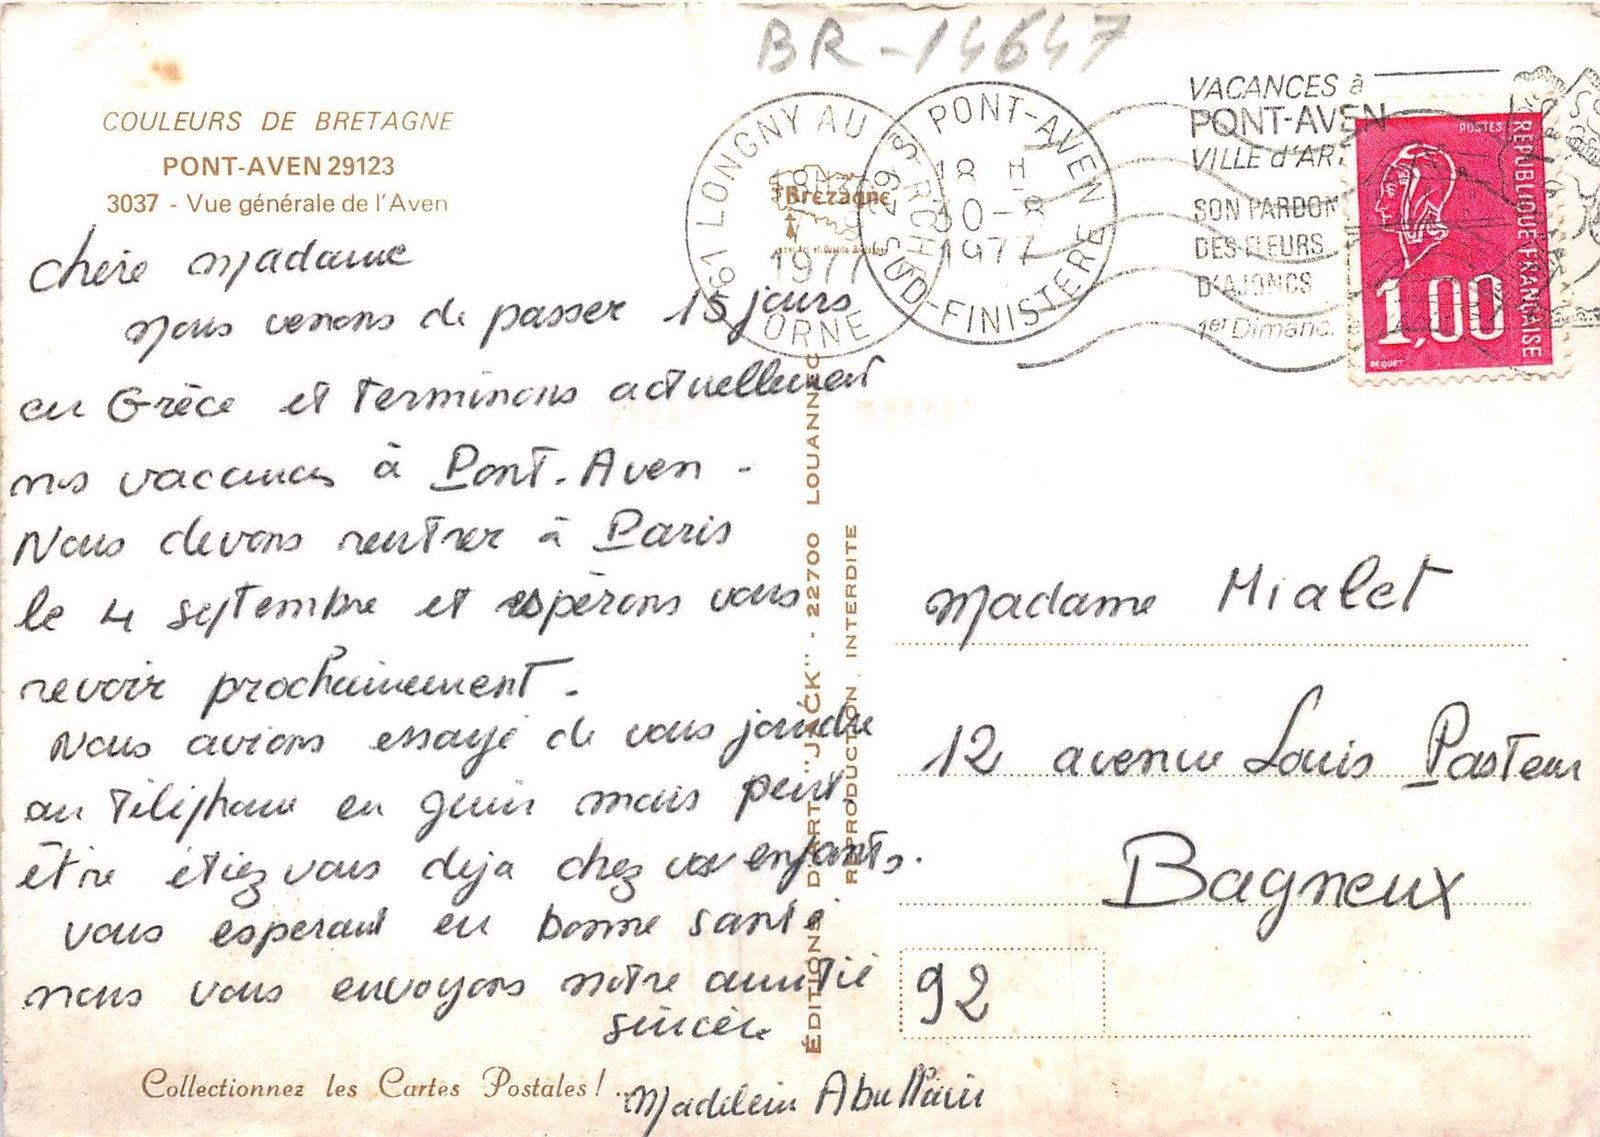 BR-14647
COULEURS DE BRETAGNE
PONT-AVEN 29123
3037 - Vue générale de l'Aven
chère Madame
nous venons de passer 15 jours
en Grèce et terminons actuellement
nos vacances à Pont-Aven -
Nous devons rentrer à Paris
le 4 septembre et espérons vous
revoir prochainement.
Nous avions essayé de vous joindre
au téléphone en juin mais peut
être étiez vous déjà chez vos enfants.
vous espérant en bonne santé
nous vous envoyons notre amitié
sincère
Madelein
Collectionnez les Cartes Postales!...
ÉDITIONS D'ART "JACK" - 22700 LOUANNEC
REPRODUCTION INTERDITE
61 LONGNY AU
1977
ORNE
Bretagne
29 S PONT-AVEN
18 H
30-8
1977
SUD-FINISTERE
VACANCES à
PONT-AVEN
VILLE d'AR
SON PARDON
DES FLEURS
D'AJONCS
1er Dimanc
POSTES
REPUBLIQUE FRANÇAISE
1,00
BEQUET
Madame Mialet
12 avenue Louis Pasteur
Bagneux
92